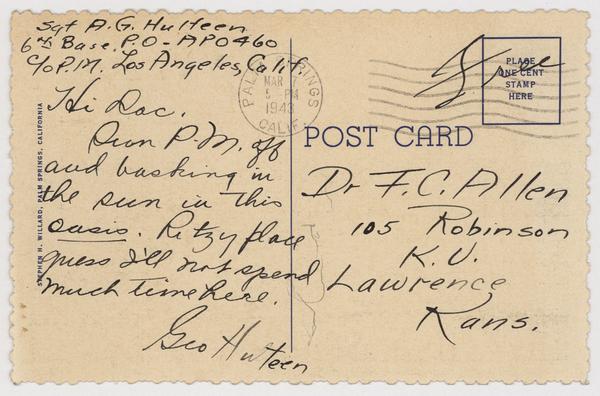 Sgt A. G. Hulteen
6th Base. P.O - APO 460
c/o P.M. Los Angeles, Calif.
Hi Doc.
Sun P.M. off
and basking in
the sun in this
oasis. Ritzy place
guess I'll not spend
much time here.
Geo Hulteen
STEPHEN H. WILLARD, PALM SPRINGS, CALIFORNIA
PALM SPRINGS
MAR 7
5 - PM
1943
CALIF.
Free
PLACE
ONE CENT
STAMP
HERE
POST CARD
Dr F. C. Allen
105 Robinson
K. U.
Lawrence
Kans.